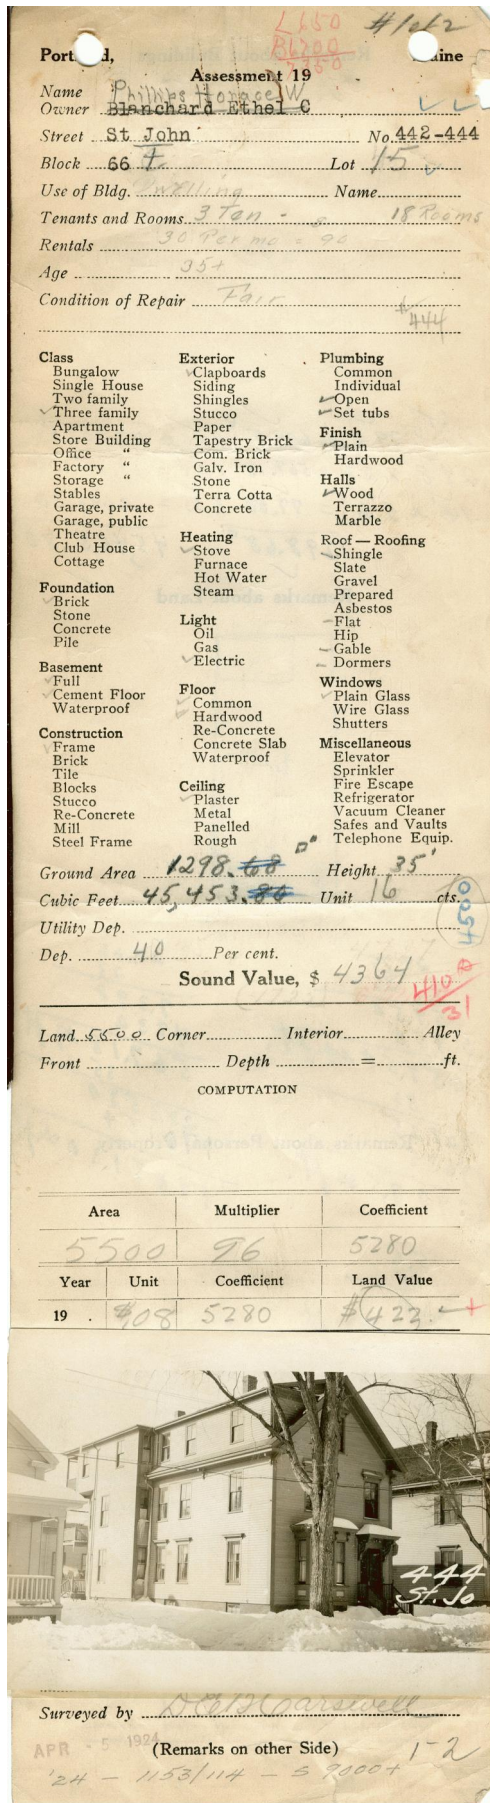 L 650
B 6700
7350
#1 of 2
Portland, Maine
Assessment 19
Name Phillips Horace W
Owner Blanchard Ethel C
Street St John No. 442-444
Block 66 F Lot 15
Use of Bldg. Dwelling Name
Tenants and Rooms 3 Ten - 18 Rooms
Rentals 30 Per mo = 90
Age 35+
Condition of Repair Fair
$444
Class
Bungalow
Single House
Two family
✓ Three family
Apartment
Store Building
Office "
Factory "
Storage "
Stables
Garage, private
Garage, public
Theatre
Club House
Cottage
Foundation
✓ Brick
Stone
Concrete
Pile
Basement
✓ Full
✓ Cement Floor
Waterproof
Construction
✓ Frame
Brick
Tile
Blocks
Stucco
Re-Concrete
Mill
Steel Frame
Exterior
✓ Clapboards
Siding
Shingles
Stucco
Paper
Tapestry Brick
Com. Brick
Galv. Iron
Stone
Terra Cotta
Concrete
Heating
✓ Stove
Furnace
Hot Water
Steam
Light
Oil
Gas
✓ Electric
Floor
✓ Common
✓ Hardwood
Re-Concrete
Concrete Slab
Waterproof
Ceiling
✓ Plaster
Metal
Panelled
Rough
Plumbing
Common
Individual
✓ Open
✓ Set tubs
Finish
✓ Plain
Hardwood
Halls
✓ Wood
Terrazzo
Marble
Roof — Roofing
✓ Shingle
Slate
Gravel
Prepared
Asbestos
– Flat
Hip
– Gable
– Dormers
Windows
✓ Plain Glass
Wire Glass
Shutters
Miscellaneous
Elevator
Sprinkler
Fire Escape
Refrigerator
Vacuum Cleaner
Safes and Vaults
Telephone Equip.
Ground Area 1298.68 Height 35'
Cubic Feet 45,453.80 Unit 16 cts.
Utility Dep.
4500
Dep. 40 Per cent.
Sound Value, $ 4364
31
Land 5500 Corner Interior Alley
Front Depth = ft.
COMPUTATION
Area Multiplier Coefficient
5500 96 5280
Year Unit Coefficient Land Value
19 . $.08 5280 $422
444
St. Jo
Surveyed by
APR - 5 1924
(Remarks on other Side) 1-2
'24 - 1153/114 - $ 9000+